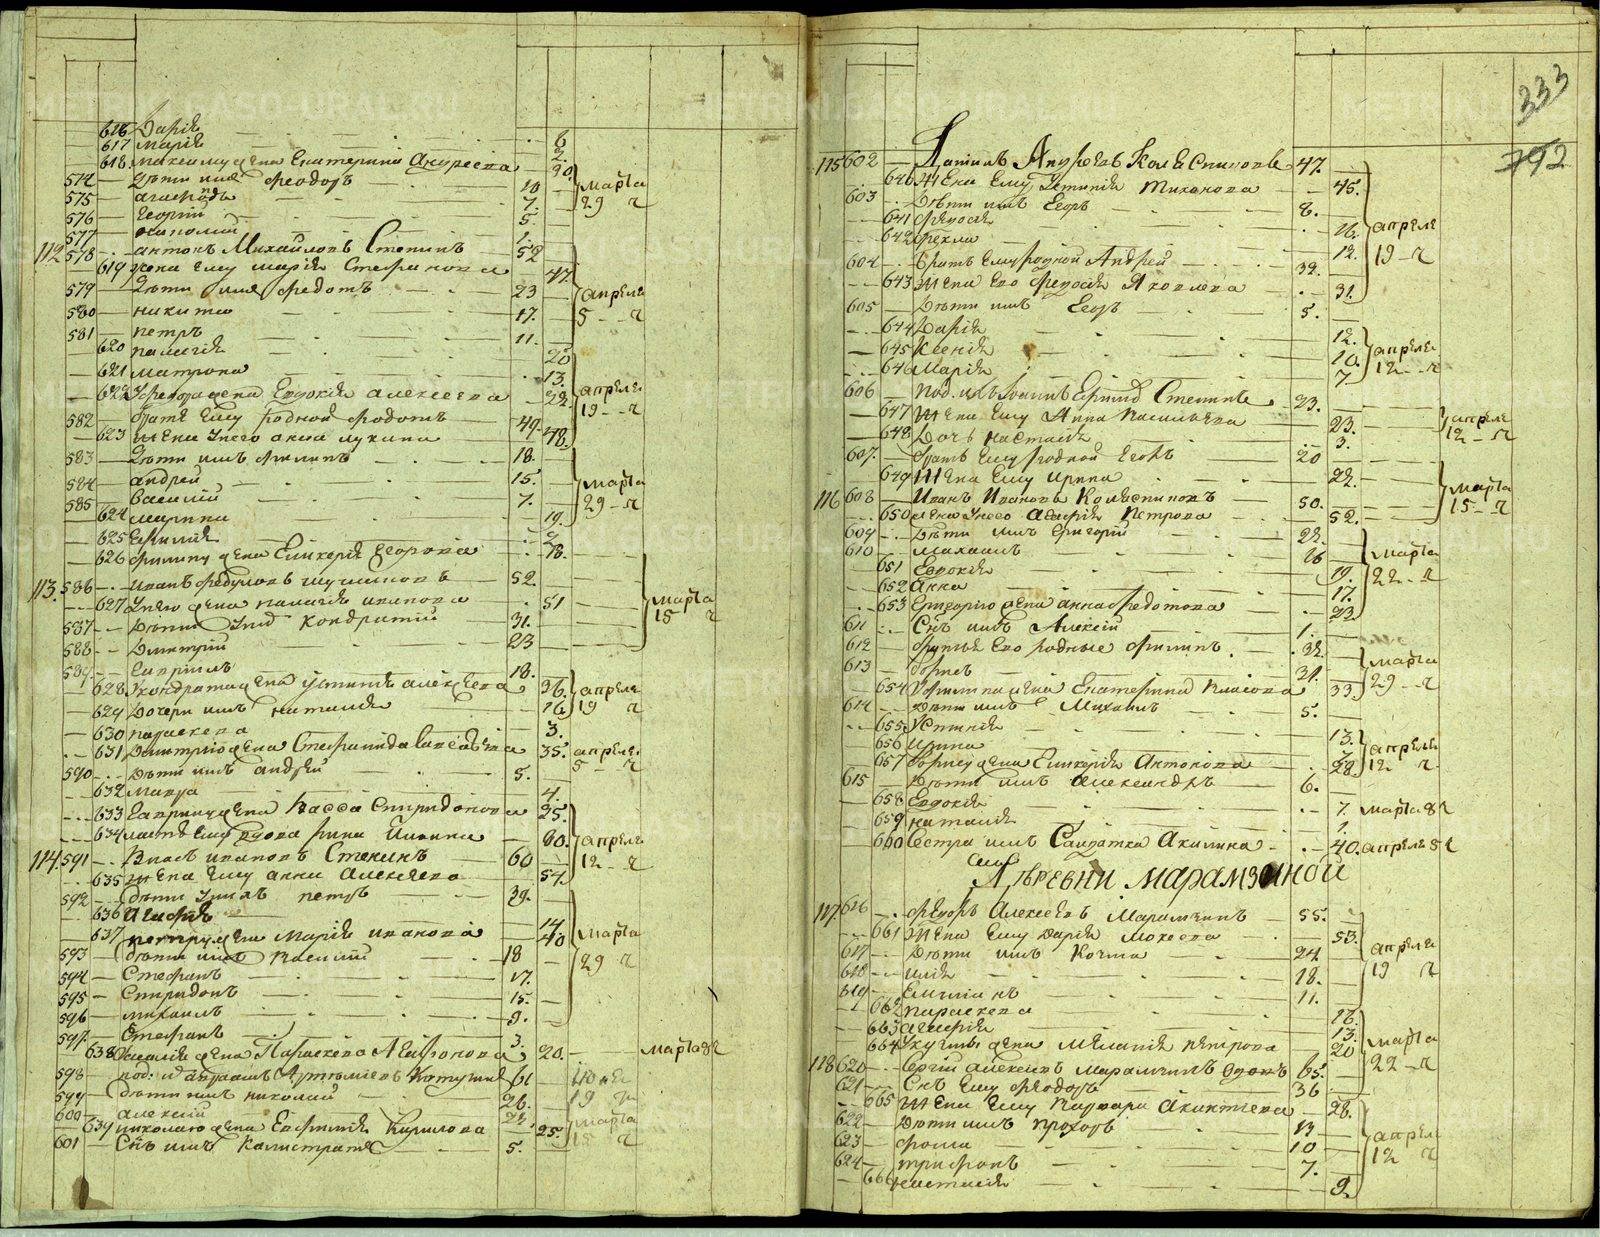 616 Дарія
617 марія 6
618 максиму жена Екатерина Андреева 2. 20.
574 Дѣти ихъ Феодоръ 10 марта
575 агафодъ 7. 29 ч
576 Георгій 5.
577 1.
112 578 антонъ Михайловъ Стенинъ 52
619 жена ему марія Стефанова 47.
579 Дѣти ихъ Федотъ 23 апреля
580 никита 17. 5 ч
581 петръ 11.
620 палагія 20
621 матрона 13.
622 жена Евдокія алексеева 22. апреля 19 ч
582 братъ ему родной Федотъ 49.
623 жена унего анна лукина 48.
583 Дѣти ихъ Филипъ 18.
584 андрей 15. марта
585 Василій 7. 29 ч
624 марина 19.
625 Ефимія 9
626 филипу жена Гликерія Егорова 18.
113. 586 иванъ Федуловъ 52.
627 Унего жена палагія иванова 51 марта
587 Дѣти Ихъ Кондратій 31. 15 ч
588 Дмитрій 23
589 Гавріилъ 18.
628 кондрата жена алексеева 36. апреля
629 Дочери ихъ наталія 16. 19 ч
630 параскева 3.
631 Дмитрію жена Стефанида Савельева 35. апреля
590 Дѣти ихъ андрей 5. 5 ч
632 Мавра 4.
633 Гаврилу жена Васса Спиридонова 25.
634 мать ему вдова 80. апреля
114. 591 Власъ ивановъ Стенинъ 60 12 ч
635 Жена Ему анна Алексеева 54.
592 Дѣти Унихъ петръ 39.
636 Агафія 14.
637 петру жена Марія иванова 40 марта
593 Дѣти ихъ Василій 18 29 ч
594 Стефанъ 17.
595 Спиридонъ 15.
596 михаилъ 9.
597 Стефанъ 3.
638 Василія жена Параскева Агафонова 20. марта 8 ч
598 под: и Авраамъ Артемьевъ 61
599 Дѣти ихъ николай 26. 19 ч
600 алексій 22.
639 николаю жена Евфимія Кирилова 25. марта
601 Сынъ ихъ Калистратъ 5. 15 ч
333
792
115 602 Андреевъ Колясниковъ 47.
640 Жена Ему Тиханова 45.
603 Дѣти ихъ Егоръ 8.
641 Федосія 16. апреля
642 Фекла 12. 19 ч
604 Братъ Ему родной Андрей 32.
643 Жена Его Федосія Яковлева 31.
605 Дѣти ихъ Егоръ 5.
644 Дарія 12.
645 Ксенія 10. апреля
646 Марія 7. 12 ч
606 Под. Стенинъ 23.
647 Жена Ему Анна Васильева 23. апреля
648 Дочь настасія 3. 12 ч
607. братъ Ему родной Егоръ 20
649 Жена Ему Ирина 22. марта
116 608 Иванъ Ивановъ Колясниковъ 50. 15 ч
650 жена Унего Агафія Петрова 52.
609 Дѣти ихъ Григорій 22.
610 Михаилъ 16 марта
651 Евдокія 19. 22 ч
652 Анна 17.
653 Григорію жена анна Федотова 23.
611 Сынъ ихъ Алексій 1.
612 братья Его родные Филипъ 32.
613 Борисъ 31. марта
654 жена Екатерина Власова 33. 29 ч
614 Дѣти ихъ Михаилъ 5.
655 Устинія 13.
656 Ирина 7. апреля
657 Борису жена Гликерія Антонова 28. 12 ч
615 Дѣти ихъ Александръ 6.
658 Евдокія 7. марта 8 ч
659 наталія 1.
660 Сестра ихъ Салдатка Акилина 40. апреля 5 ч
Деревни марамзиной
117 616 Федоръ Алексеевъ Марамзинъ 55.
661 Жена Ему Дарія Мокеева 53.
617 Дѣти ихъ Козма 24 апреля
618 илія 18. 19 ч
619 Емиліанъ 11.
662 параскева 16.
663 агафія 13. марта
664 жена Меланія петрова 20 22 ч
118 620 Сергій алексеевъ марамзинъ вдовъ 65.
621 Сынъ Ему Феодоръ 36
665 Жена Ему Варвара 28.
622 Дѣти ихъ прохоръ 13
623 фома 10 апреля
624 трифонъ 7. 12 ч
666 настасія 9.